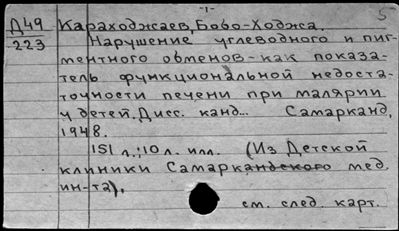 -1-
5
Д49 Караходжаев, Бово-Ходжа.
223 Нарушение углеводного и пиг-
ментного обменов - как показа-
тель функциональной недоста-
точности печени при малярии
у детей. Дисс. канд... Самарканд,
1948.
151 л.; 10 л. илл. (Из Детской
клиники Самаркандского мед.
ин-та),
см. след. карт.